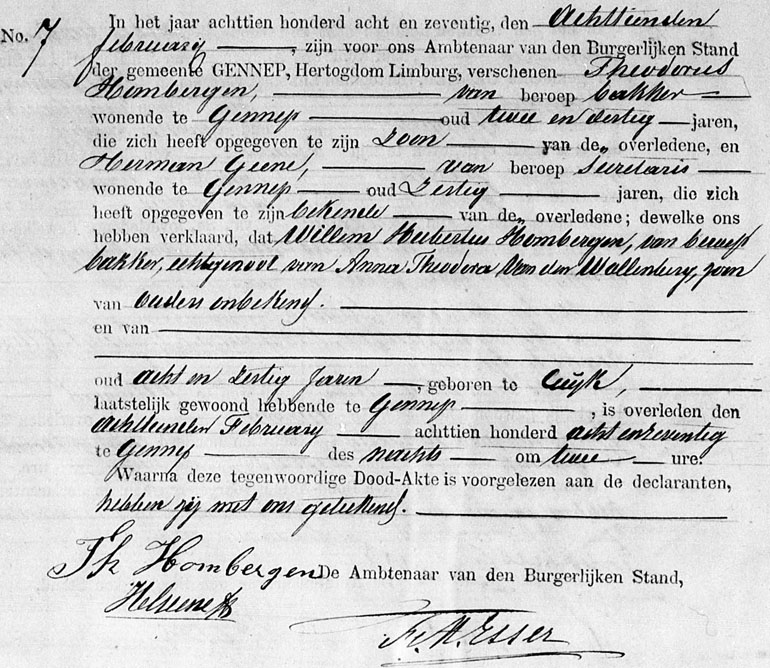 No. 7
In het jaar achttien honderd acht en zeventig, den Achttienden
february, zijn voor ons Ambtenaar van den Burgerlijken Stand
der gemeente GENNEP, Hertogdom Limburg, verschenen Theodorus
Hombergen, van beroep bakker
wonende te Gennep oud twee en dertig jaren,
die zich heeft opgegeven te zijn Zoon van de overledene, en
Herman Geene, van beroep Secretaris
wonende te Gennep oud Zestig jaren, die zich
heeft opgegeven te zijn bekende van de overledene; dewelke ons
hebben verklaard, dat Willem Hubertus Hombergen, van beroep
bakker, echtgenoot van Anna Theodora Van den Wallenberg, zoon
van ouders onbekend.
en van
oud acht en Zestig Jaren, geboren te Cuijk,
laatstelijk gewoond hebbende te Gennep, is overleden den
Achttienden February achttien honderd acht en zeventig
te Gennep des nachts om twee ure.
Waarna deze tegenwoordige Dood-Akte is voorgelezen aan de declaranten,
hebben zij met ons geteekend.
Th Hombergen De Ambtenaar van den Burgerlijken Stand,
Esser